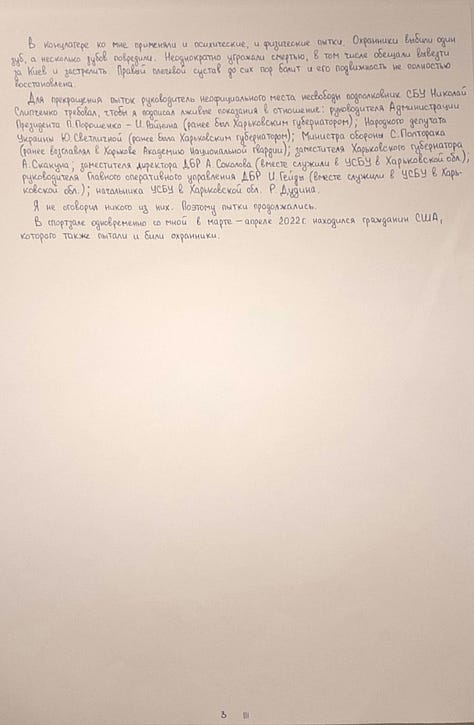 В концлагере ко мне применяли и психические, и физические пытки. Охранники выбили один
зуб, а несколько зубов повредили. Неоднократно угрожали смертью, в том числе обещали вывезти
за Киев и застрелить. Правый плечевой сустав до сих пор болит и его подвижность не полностью
восстановлена.
Для прекращения пыток руководитель неофициального места несвободы подполковник СБУ Николай
Слипченко требовал, чтобы я подписал лживые показания в отношение: руководителя Администрации
Президента П. Порошенко – И. Райнина (ранее был Харьковским губернатором); Народного депутата
Украины Ю. Светличной (ранее была Харьковским губернатором); Министра обороны С. Полторака
(ранее возглавлял в Харькове Академию Национальной гвардии); заместителя Харьковского губернатора
А. Скакуна; заместителя директора ДБР А. Соколова (вместе служили в УСБУ в Харьковской обл);
руководителя Главного оперативного управления ДБР И. Гейды (вместе служили в УСБУ в Харь-
ковской обл.); начальника УСБУ в Харьковской обл. Р. Дудина.
Я не оговорил никого из них. Поэтому пытки продолжались.
В спортзале одновременно со мной в марте – апреле 2022г. находился гражданин США,
которого также пытали и били охранники.
3 III